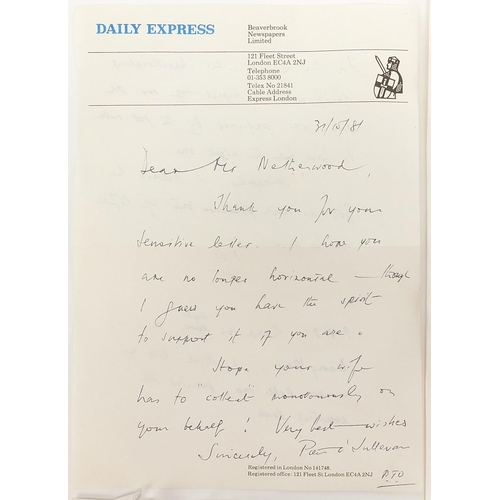 DAILY EXPRESS
Beaverbrook
Newspapers
Limited
121 Fleet Street
London EC4A 2NJ
Telephone
01-353 8000
Telex No 21841
Cable Address
Express London
31/10/81
Dear Mr Netherwood,
Thank you for your
sensitive letter. I hope you
are no longer horizontal — though
I guess you have the spirit
to support it if you are.
Hope your wife
has to "collect" monotonously on
your behalf! Very best wishes
Sincerely, Peter O'Sullevan
Registered in London No 141748.
Registered office: 121 Fleet St London EC4A 2NJ
P.T.O